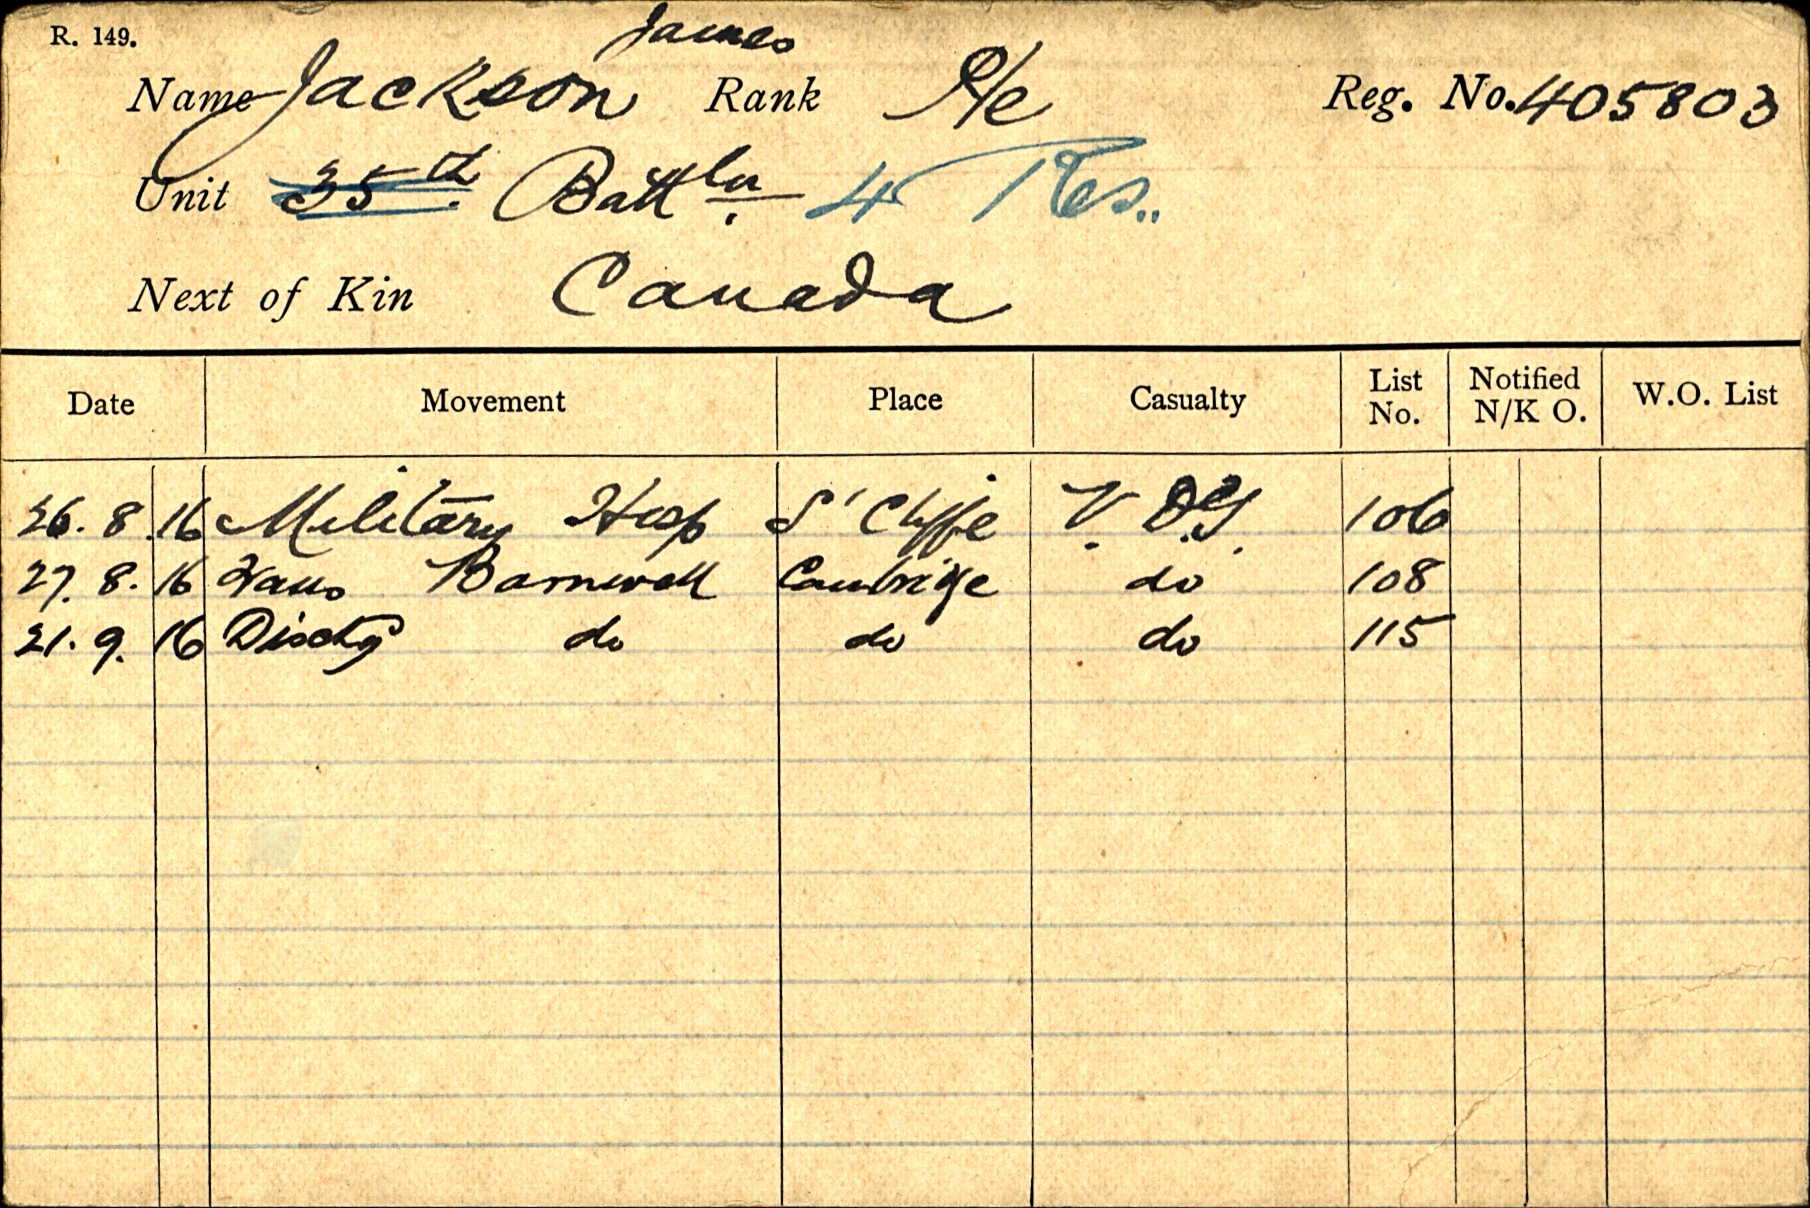 R. 149.
James
Name Jackson Rank Pte Reg. No. 405803
Unit 35th Battln. 4 Res.
Next of Kin Canada
Date Movement Place Casualty List No. Notified N/K O. W.O. List
26. 8. 16 Military Hosp S'Cliffe V. D.G. 106
27. 8. 16 Trans Barnwell Cambridge do 108
21. 9. 16 Dischg do do do 115